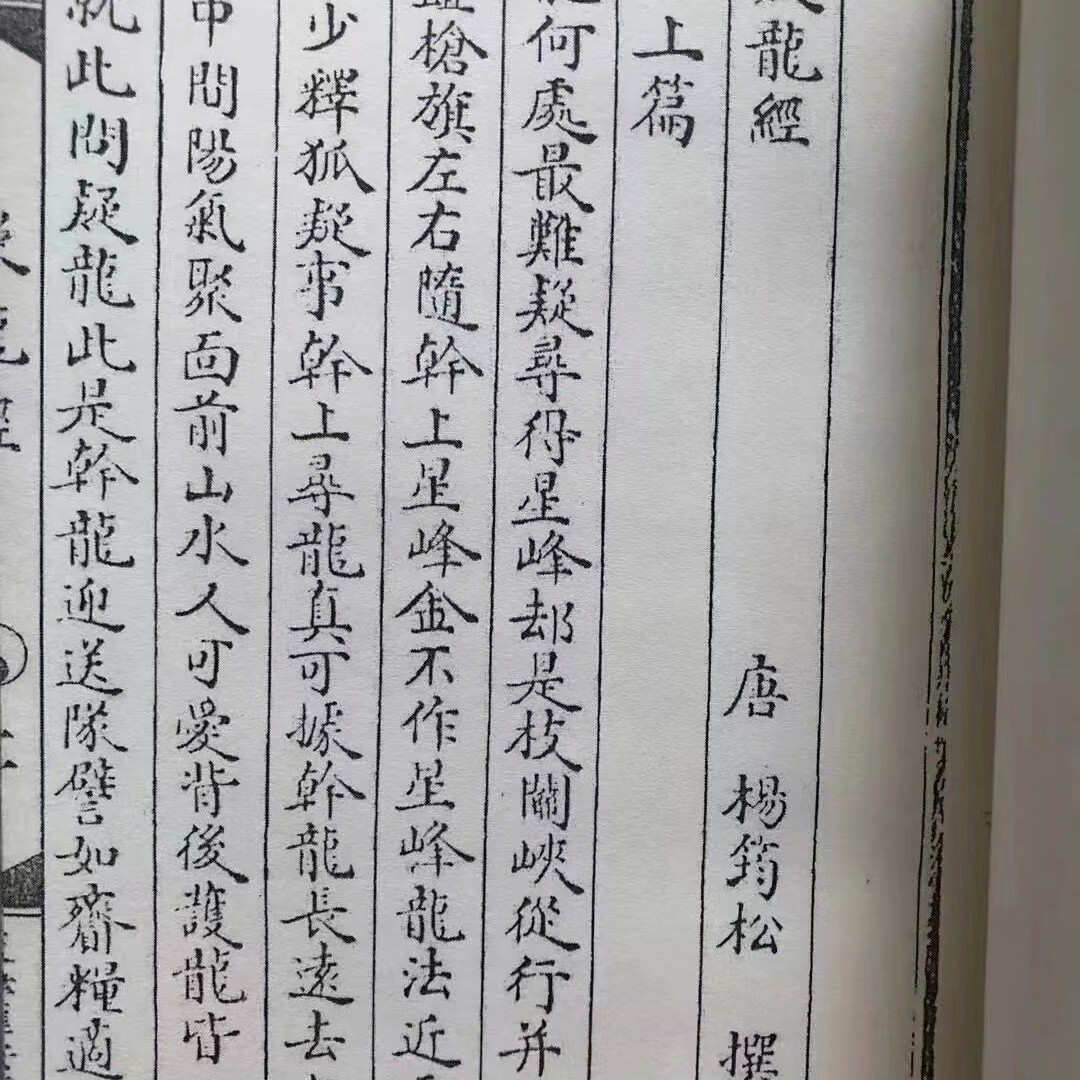 龍經
唐 楊筠松 撰
上篇
何處最難疑尋得星峰却是枝關峽從行并
槍旗左右隨幹上星峰金不作星峰龍法近
少釋狐疑事幹上尋龍真可據幹龍長遠去
中間陽氣聚面前山水人可愛背後護龍皆
就此問疑龍此是幹龍迎送隊譬如齎糧適